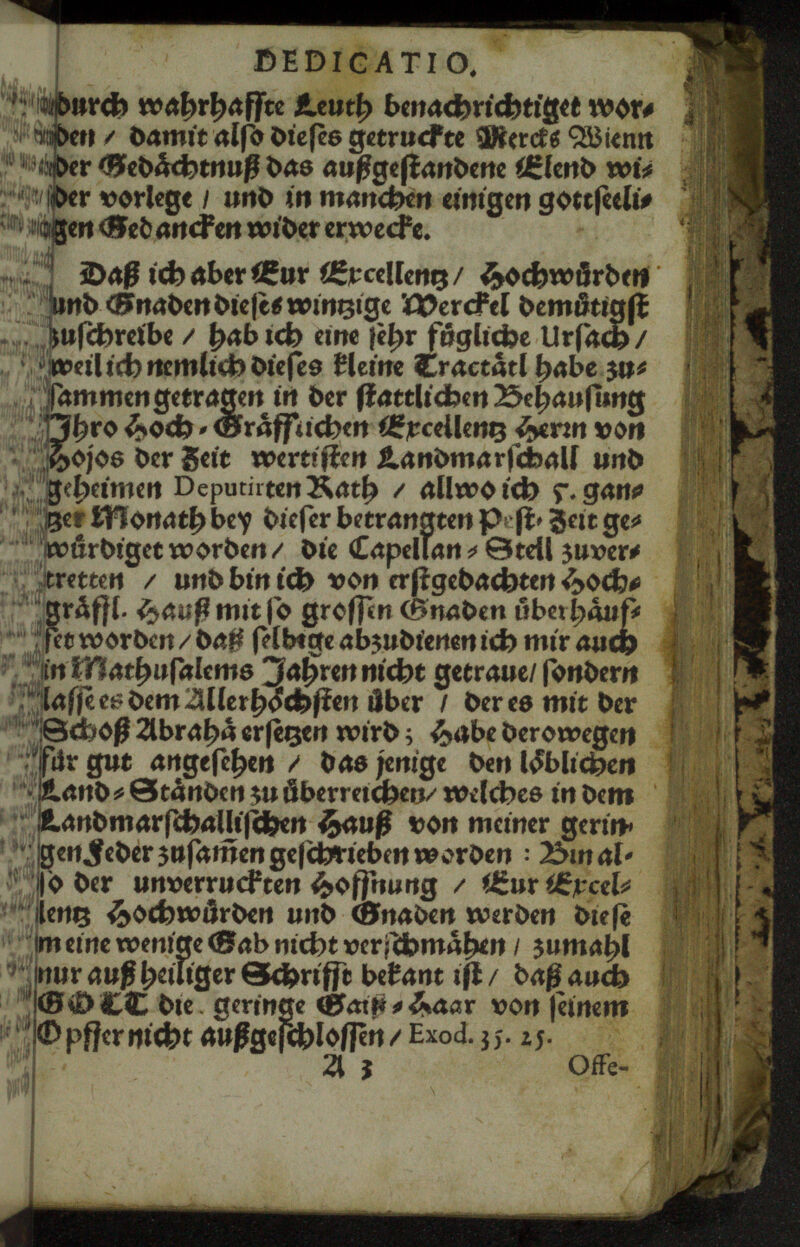 DEDICATIO.
durch wahrhaffte Leuth benachrichtiget wor-
den / damit also dieses getruckte Mercks Wienn
der Gedächtnuß das außgestandene Elend wi-
der vorlege / und in manchen einigen gottseeli-
gen Gedancken wider erwecke.
Daß ich aber Eur Excellentz / Hochwürden
und Gnaden dieses wintzige Werckel demütigst
zuschreibe / hab ich eine sehr fügliche Ursach /
weil ich nemlich dieses kleine Tractätl habe zu-
sammen getragen in der stattlichen Behausung
Ihro Hoch-Gräfflichen Excellentz Herrn von
Hojos der Zeit wertisten Landmarschall und
geheimen Deputirten Rath / allwo ich 5. gan-
zer Monath bey dieser betrangten Pest-Zeit ge-
würdiget worden / die Capellan-Stell zuver-
tretten / und bin ich von erstgedachten Hoch-
gräffl. Hauß mit so grossen Gnaden überhäuf-
fet worden / daß selbige abzudienen ich mir auch
in Mathusalems Jahren nicht getraue / sondern
lasse es dem Allerhöchsten über / der es mit der
Schoß Abrahä ersetzen wird; Habe derowegen
für gut angesehen / das jenige den löblichen
Land-Ständen zu überreichen / welches in dem
Landmarschallischen Hauß von meiner gerin-
gen Feder zusamen geschrieben worden : Bin al-
so der unverruckten Hoffnung / Eur Excel-
lentz Hochwürden und Gnaden werden diese
meine wenige Gab nicht verschmähen / zumahl
nur auß heiliger Schrifft bekant ist / daß auch
GOTT die geringe Gaiß-Haar von seinem
Opffer nicht außgeschlossen / Exod. 35. 25.
A 3 Offe-